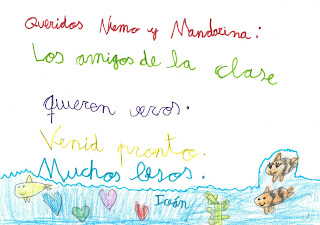 Queridos Nemo y Mandarina:
Los amigos de la clase
quieren veros.
Venid pronto.
Muchos besos.
Iván